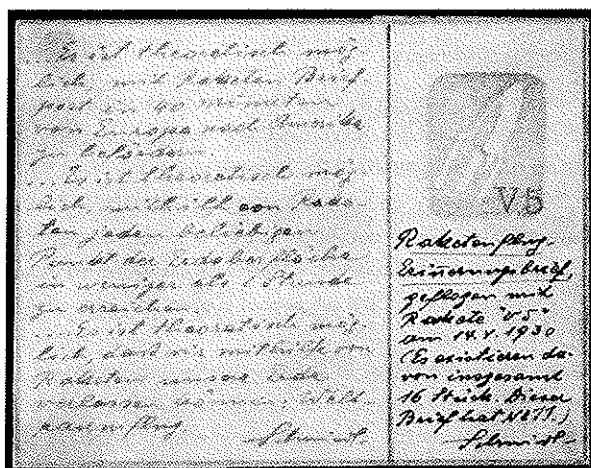 ... Es ist theoretisch mög-
lich, mit Raketen Brief-
post in 40 Minuten
von Europa nach Amerika
zu befördern.
... Es ist theoretisch mög-
lich, mit Hilfe von Rake-
ten jeden beliebigen
Punkt der Erdoberfläche
in weniger als 1 Stunde
zu erreichen.
... Es ist theoretisch mög-
lich, daß wir mit Hilfe von
Raketen unsere Erde
verlassen können. Welt-
raumflug
Schmiedl
V5
Raketenflug-
Erinnerungsbrief,
geflogen mit
Rakete "V5"
am 14. V. 1930
(Es existieren da-
von insgesamt
16 Stück. Dieser
Brief hat N°
Schmiedl